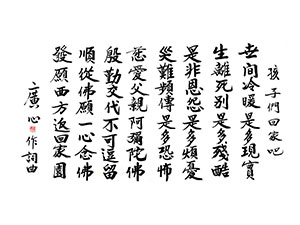 孩子們回家吧
世间冷暖是多現實
生離死別是多殘酷
是非恩怨是多煩憂
災難頻傳是多恐怖
慈愛父親阿彌陀佛
殷勤交代不可逗留
順從佛願一心念佛
發願西方返回家園
廣心作詞曲